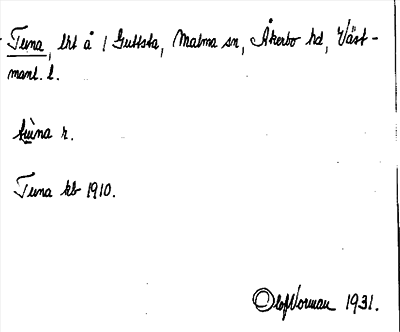 Tuna, lht å 1 Guttsta, Malma sn, Åkerbo hd, Väst-
manl. l.
tùna r.
Tuna kb 1910.
Olof Norman 1931.